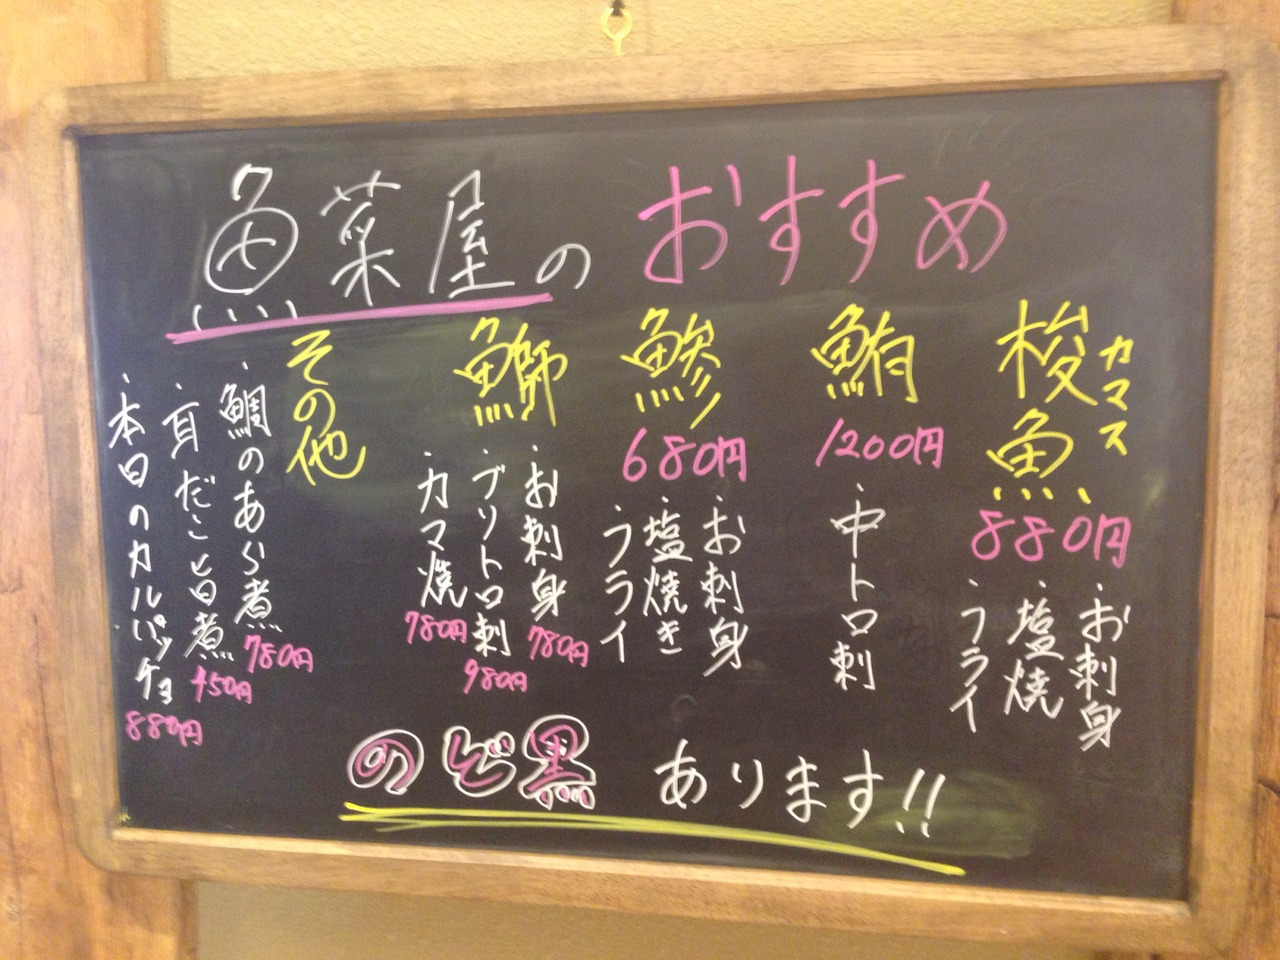 魚菜屋のおすすめ
梭魚
カマス
880円
・お刺身
・塩焼
・フライ
鮪
1200円
・中トロ刺
鯵
680円
・お刺身
・塩焼き
・フライ
鰤
・お刺身 780円
・ブリトロ刺 980円
・カマ焼 780円
その他
・鯛のあら煮 780円
・耳だこ旨煮 450円
・本日のカルパッチョ 880円
のど黒 あります!!